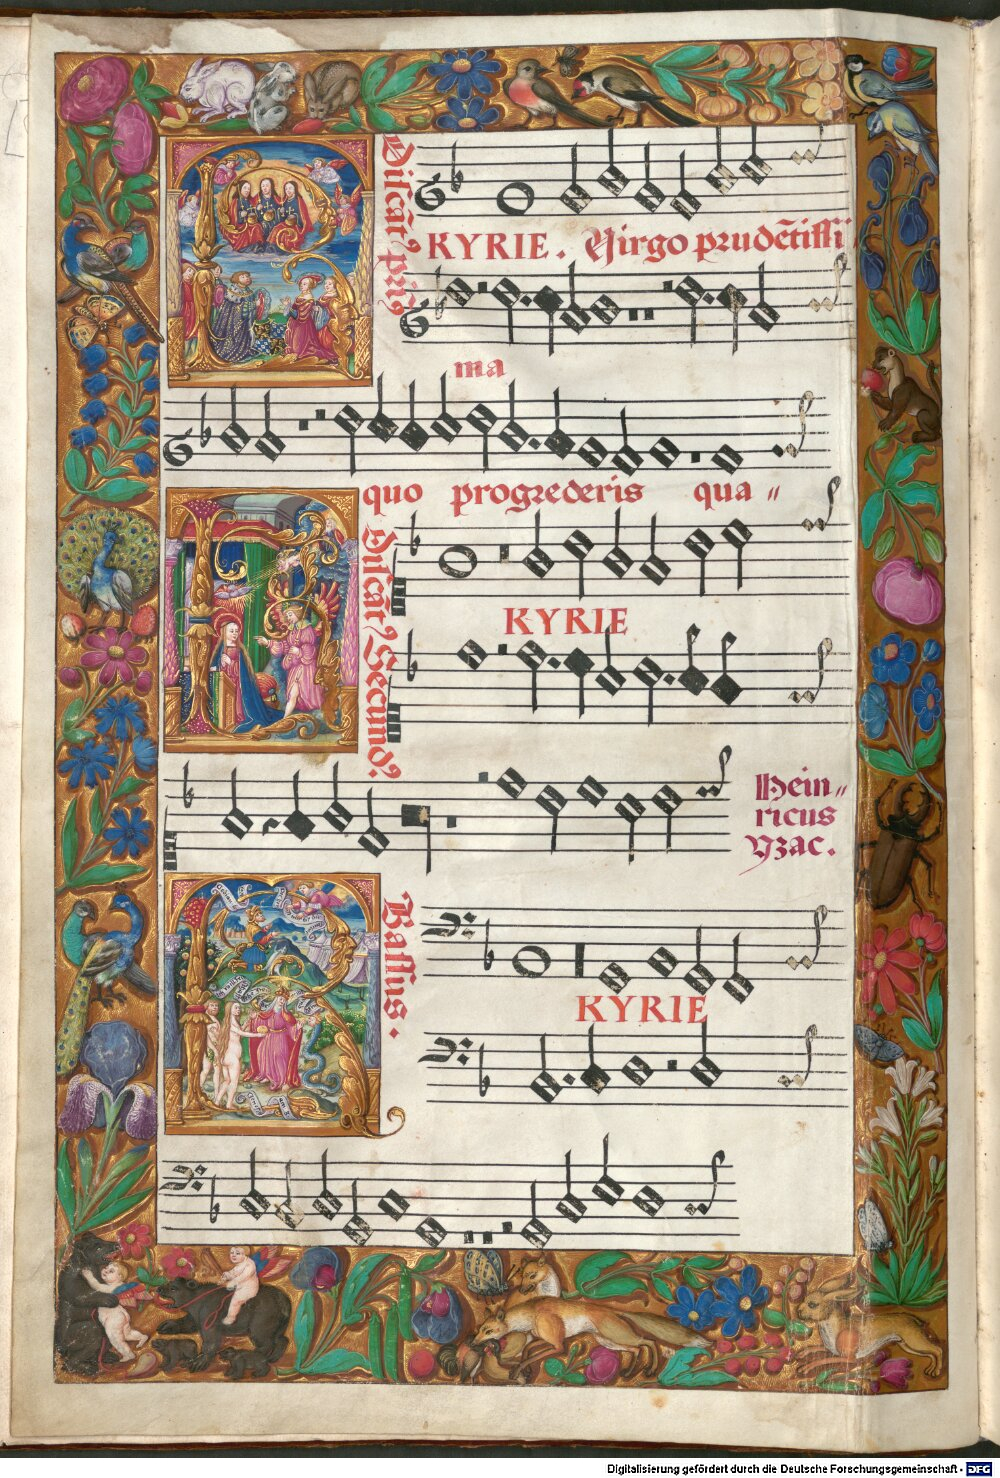 Discāt⁹ prim⁹
KYRIE. Virgo prudētissi
ma
quo progrederis qua〃
Discāt⁹ Secund⁹.
KYRIE
Hein〃
ricus
Yzac.
Bassus.
KYRIE
Digitalisierung gefördert durch die Deutsche Forschungsgemeinschaft - DFG